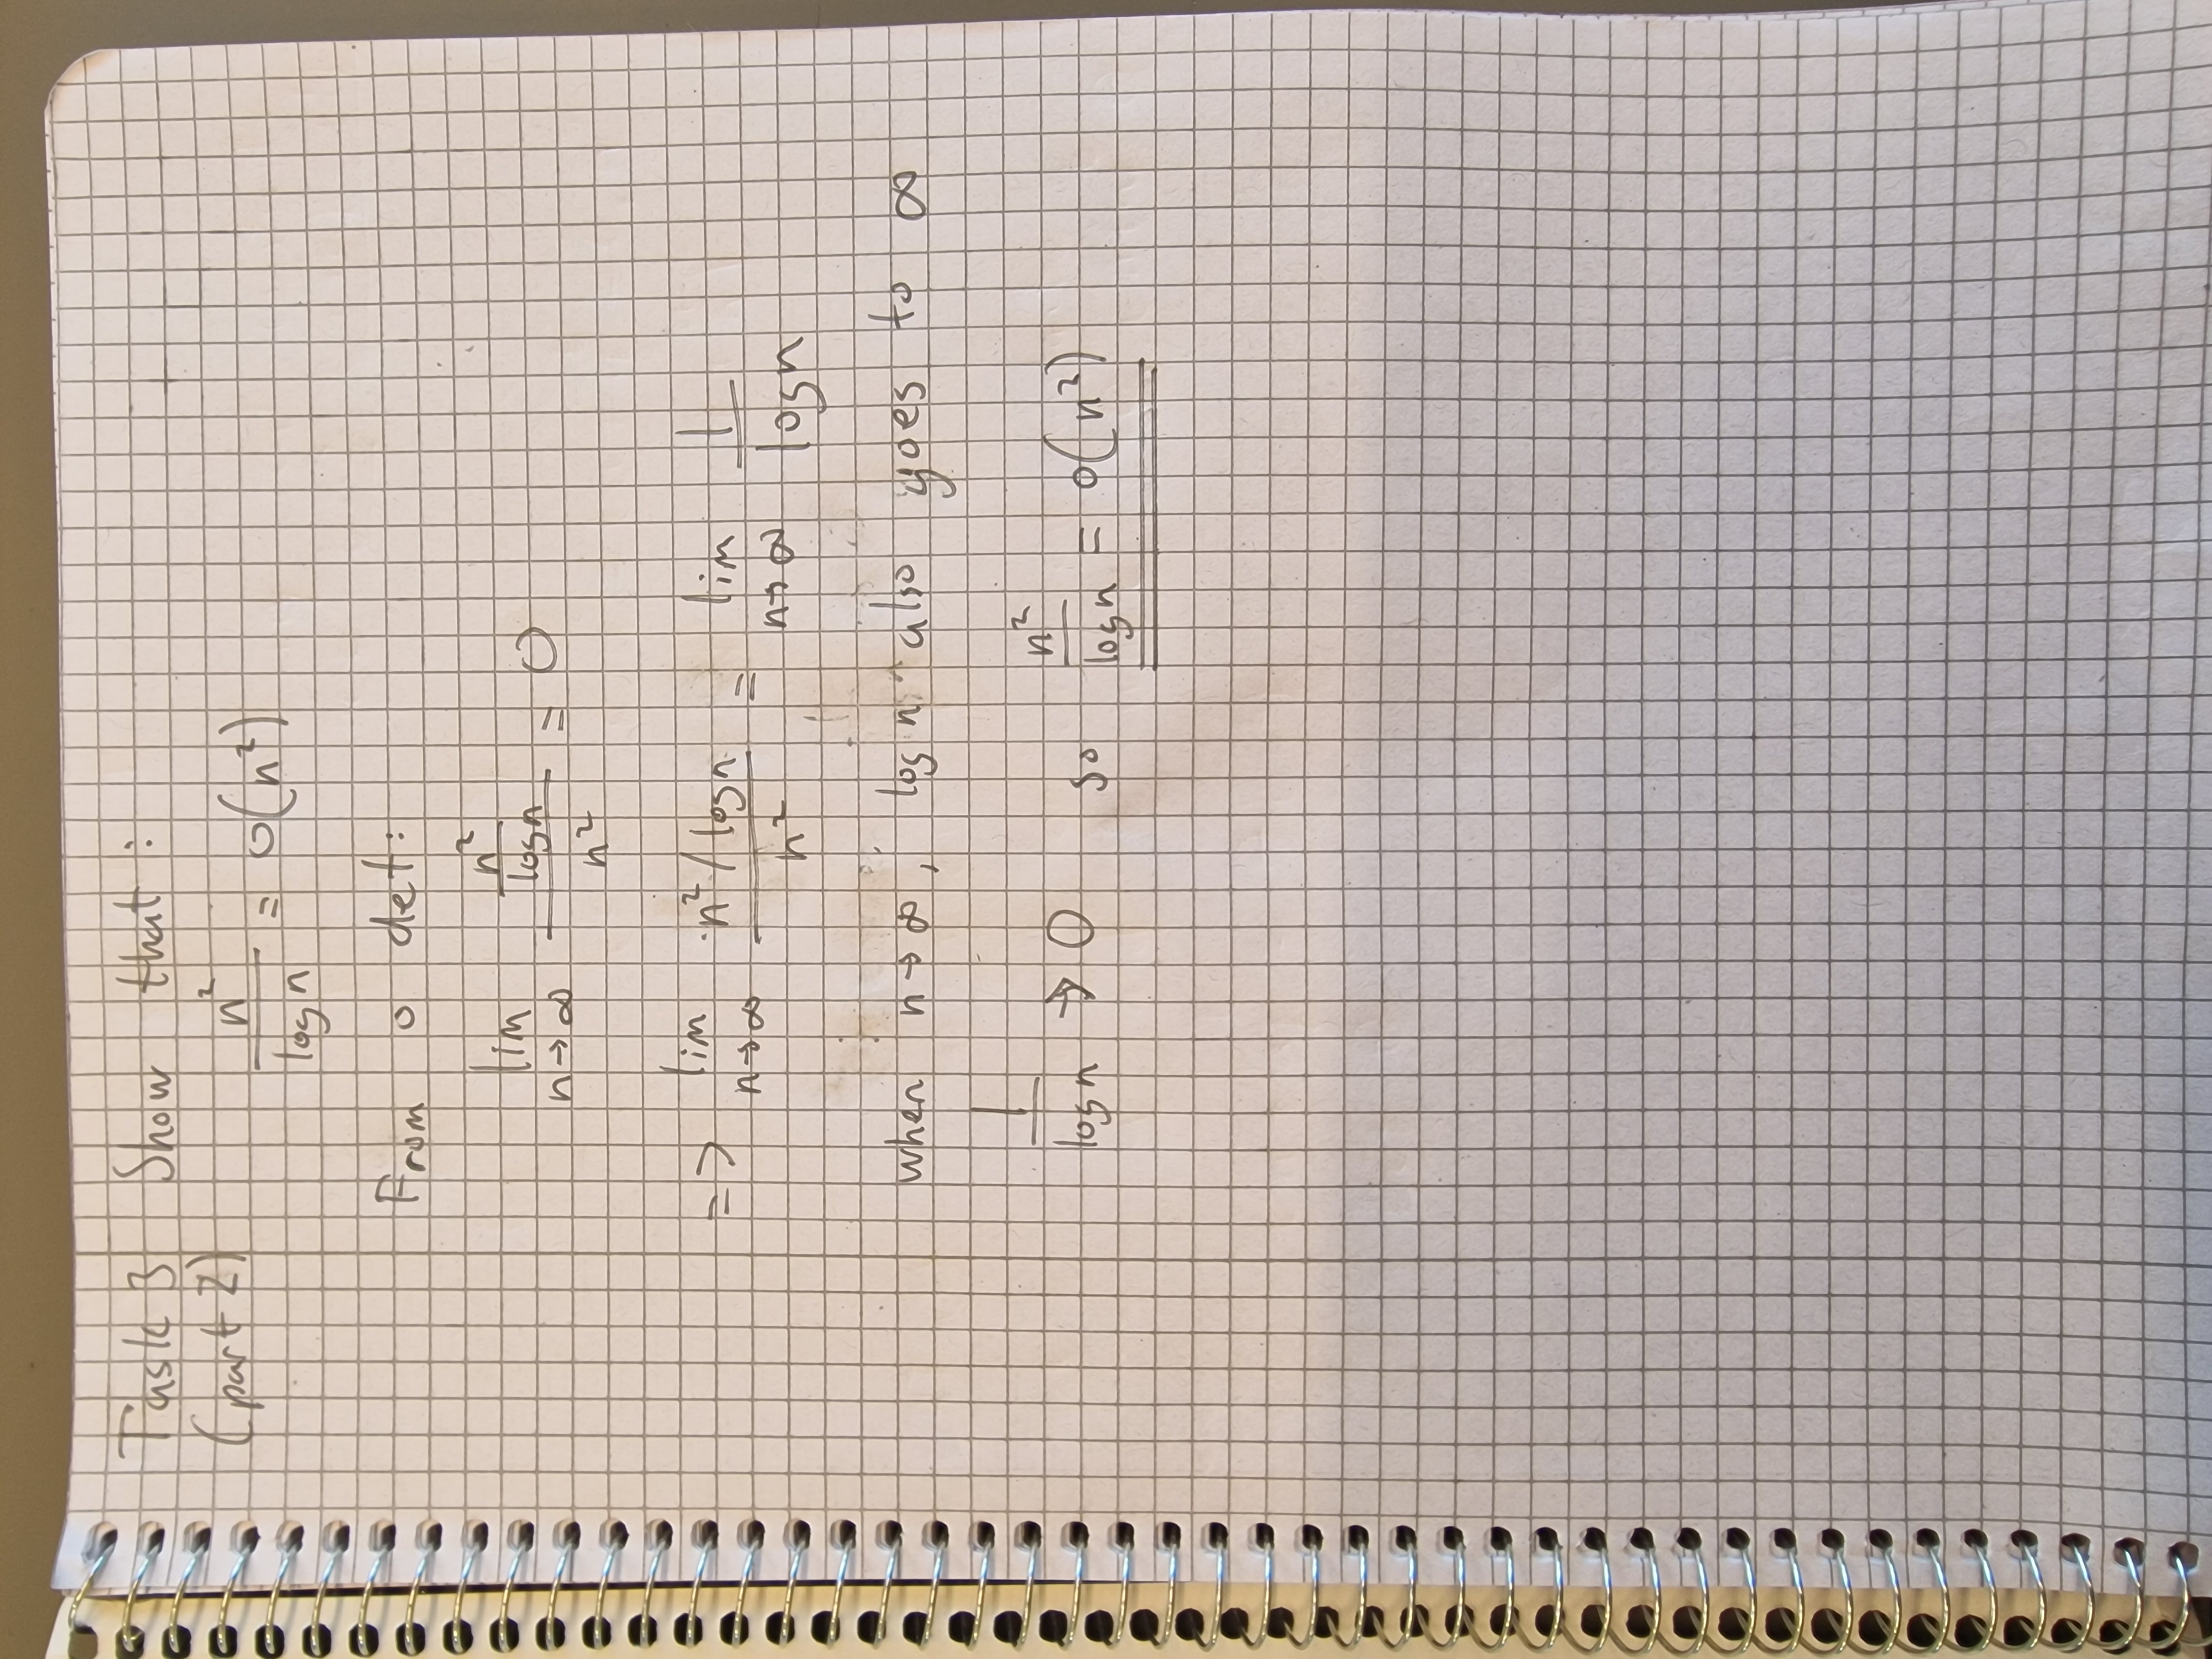 Task 3 Show that :
(part 2)
n² / log n = o(n²)
From o def:
lim n→∞ (n² / log n) / n² = 0
=> lim n→∞ (n² / log n) / n² = lim n→∞ 1 / log n
when n→∞, log n also goes to ∞
1 / log n → 0 so n² / log n = o(n²)